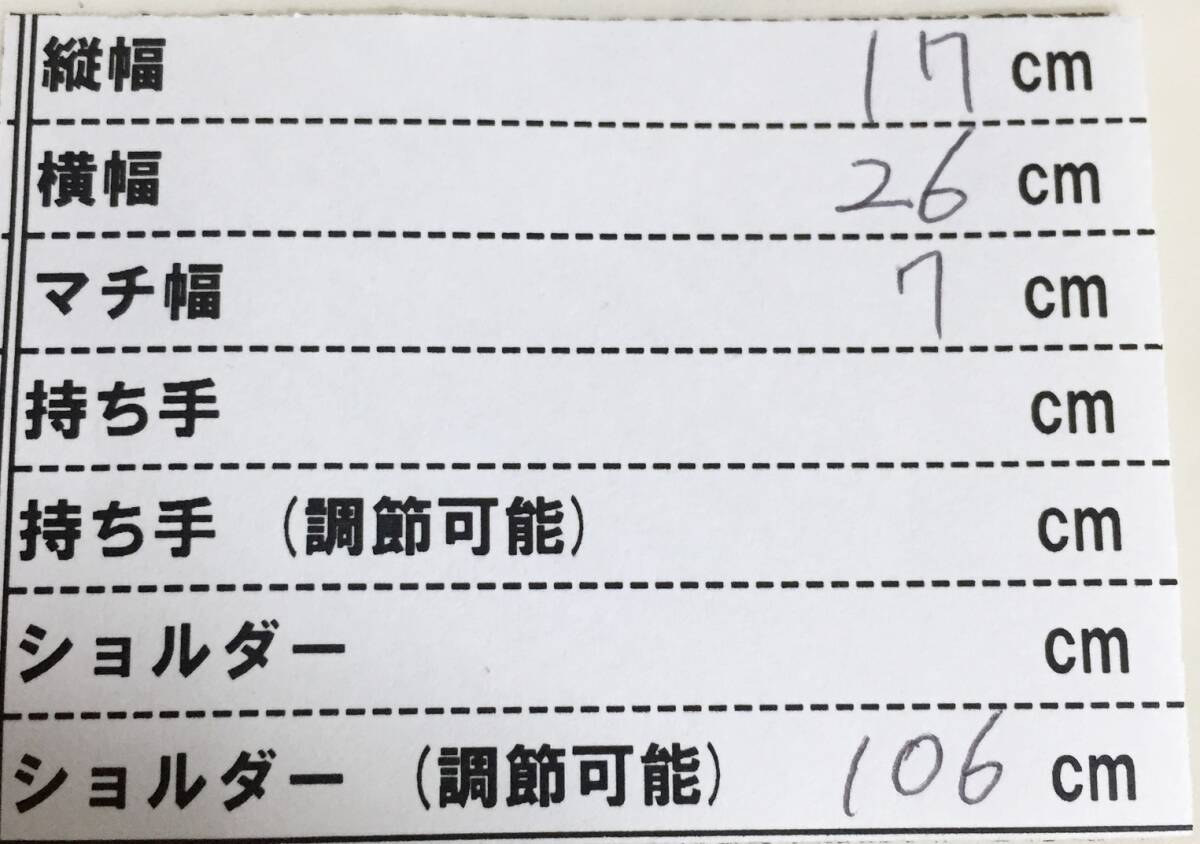 縦幅 17 cm
横幅 26 cm
マチ幅 7 cm
持ち手 cm
持ち手 (調節可能) cm
ショルダー cm
ショルダー (調節可能) 106 cm